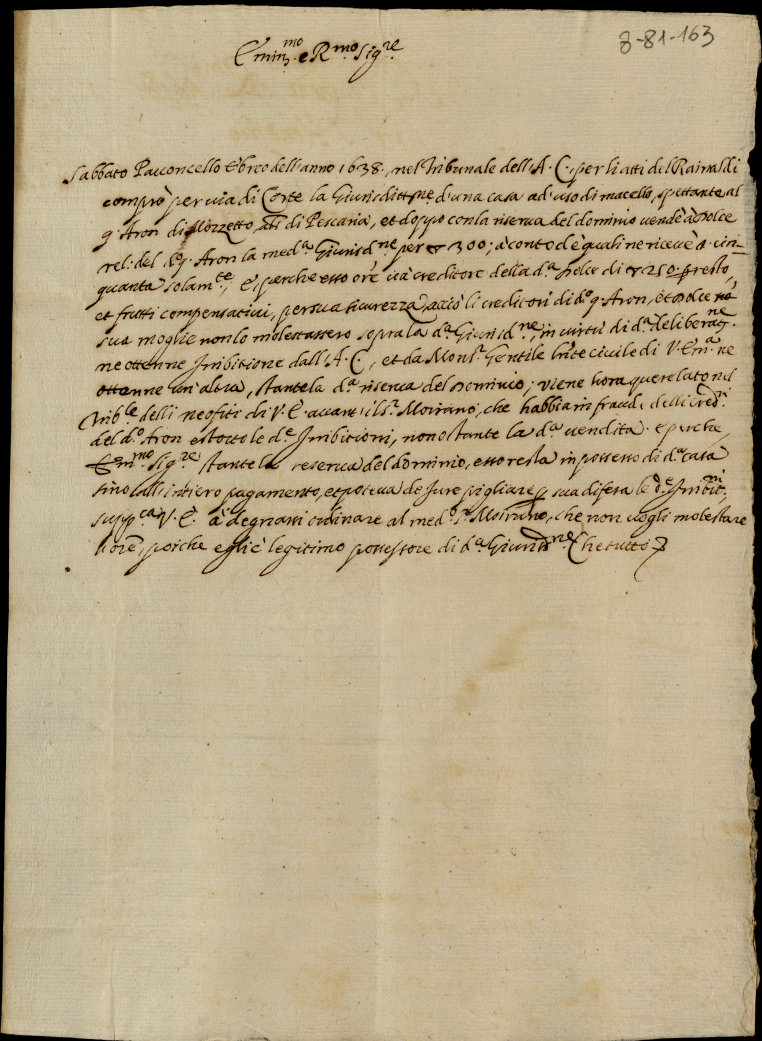 8-81-163
Emin.mo e R.mo Sig.re
Sabbato Pavoncello Ebreo dell'anno 1638. nel Tribunale dell'A. C. per li atti del Rainaldi
comprò per via di Corte la Giurisditt.ne d'una casa ad'uso di macello, spettante al
q. Aron di Mozzetto, alli di Pescaria, et doppo con la riserva del dominio vendè à Dolce
rel. del d.o q. Aron la med.a Giurisd.ne per 300; à conto de quali ne ricevè s. cin-
quanta solam.te, e perche esso ore era creditore della d.a Dolce di 250. presto,
et frutti compensativi, per sua sicurezza, acciò li creditori di d.o q. Aron, et Dolce
sua moglie non lo molestassero sopra la d.a Giurisd.ne, in virtù di d.a deliberaz.ne
ne ottenne Inibitione dall'A. C., et da Mons.r Gentile civile di V. Em.a ne
ottenne un'altra, stante la d.a riserva del Dominio; viene hora querelato nel
Trib.le delli neofiti di V. E. avanti il s.r Moirano, che habbia in fraude delli Cred.ri
del d.o Aron estorto le d.e Inibitioni, non ostante la d.a vendita. e perche,
Em.mo Sig.re stante la reserva del dominio, esso resta in possesso di d.a casa
sino all'intiero pagamento, et poteva de Jure pigliare p sua difesa le d.e Inibit.ni,
supp.ca V. E. à degnarsi ordinare al med.o s.r Moirano, che non vogli molestare
l'ore, poiche egli è legitimo possessore di d.a Giurisd.ne Che tutto